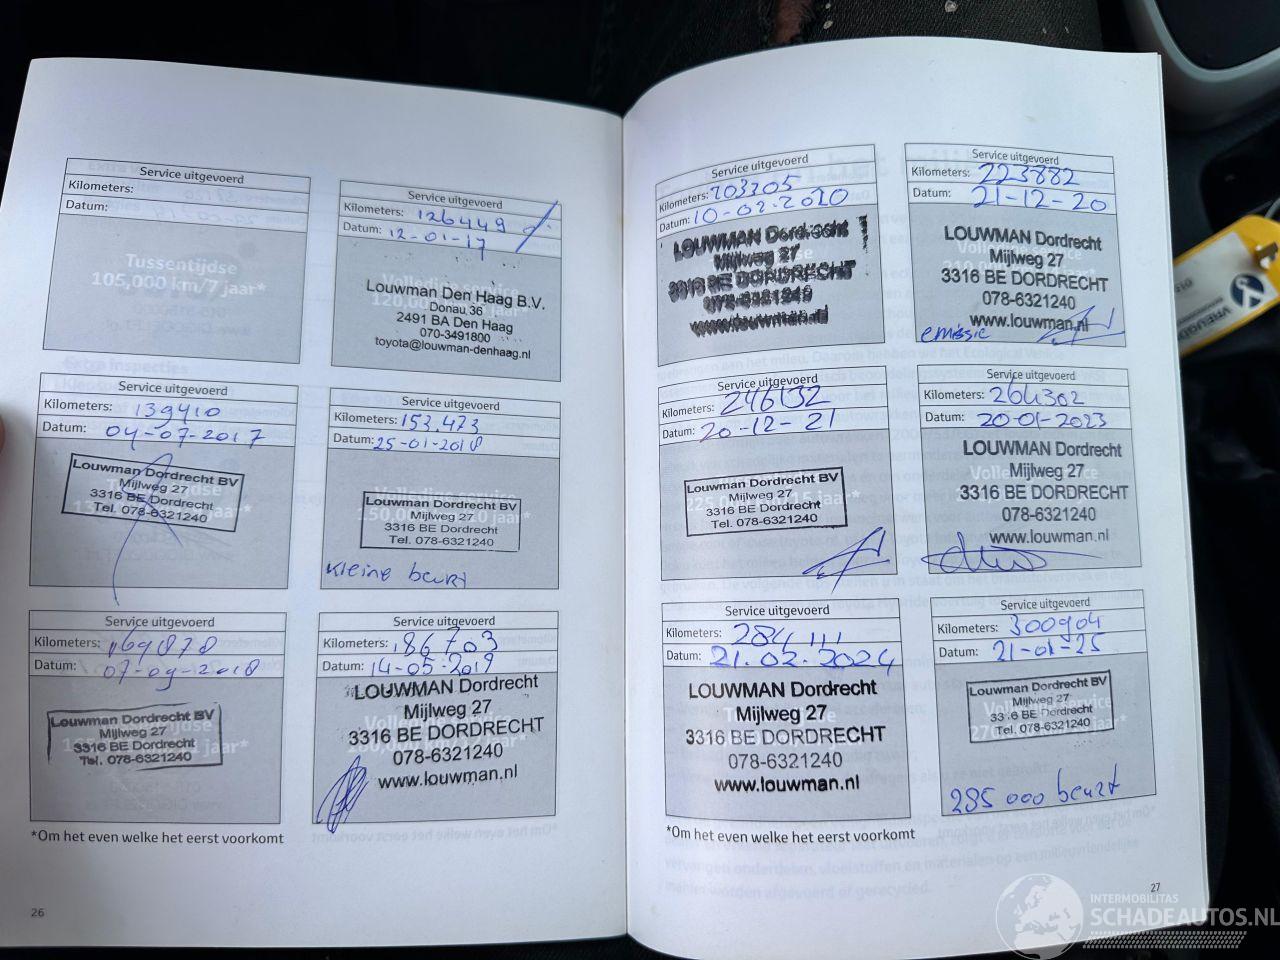 Service uitgevoerd
Kilometers:
Datum:
Tussentijdse
105,000 km/7 jaar*
Service uitgevoerd
Kilometers: 126449
Datum: 12-01-17
Louwman Den Haag B.V.
Donau 36
2491 BA Den Haag
070-3491800
toyota@louwman-denhaag.nl
Service uitgevoerd
Kilometers: 139410
Datum: 04-07-2017
Louwman Dordrecht BV
Mijlweg 27
3316 BE Dordrecht
Tel. 078-6321240
Service uitgevoerd
Kilometers: 153.473
Datum: 25-01-2018
Louwman Dordrecht BV
Mijlweg 27
3316 BE Dordrecht
Tel. 078-6321240
Kleine beurt
Service uitgevoerd
Kilometers: 169878
Datum: 07-09-2018
Louwman Dordrecht BV
Mijlweg 27
3316 BE Dordrecht
Tel. 078-6321240
Service uitgevoerd
Kilometers: 186703
Datum: 14-05-2019
LOUWMAN Dordrecht
Mijlweg 27
3316 BE DORDRECHT
078-6321240
www.louwman.nl
*Om het even welke het eerst voorkomt
26
Service uitgevoerd
Kilometers: 203205
Datum: 10-02-2020
LOUWMAN Dordrecht
Mijlweg 27
3316 BE DORDRECHT
078-6321240
www.louwman.nl
Service uitgevoerd
Kilometers: 223882
Datum: 21-12-20
LOUWMAN Dordrecht
Mijlweg 27
3316 BE DORDRECHT
078-6321240
www.louwman.nl
emissie
Service uitgevoerd
Kilometers: 246132
Datum: 20-12-21
Louwman Dordrecht BV
Mijlweg 27
3316 BE Dordrecht
Tel. 078-6321240
Service uitgevoerd
Kilometers: 264302
Datum: 20-01-2023
LOUWMAN Dordrecht
Mijlweg 27
3316 BE DORDRECHT
078-6321240
www.louwman.nl
Service uitgevoerd
Kilometers: 284111
Datum: 21.02.2024
LOUWMAN Dordrecht
Mijlweg 27
3316 BE DORDRECHT
078-6321240
www.louwman.nl
Service uitgevoerd
Kilometers: 300904
Datum: 21-01-25
Louwman Dordrecht BV
Mijlweg 27
3316 BE Dordrecht
Tel. 078-6321240
285 000 beurt
*Om het even welke het eerst voorkomt
27
INTERMOBILITAS
SCHADEAUTOS.NL